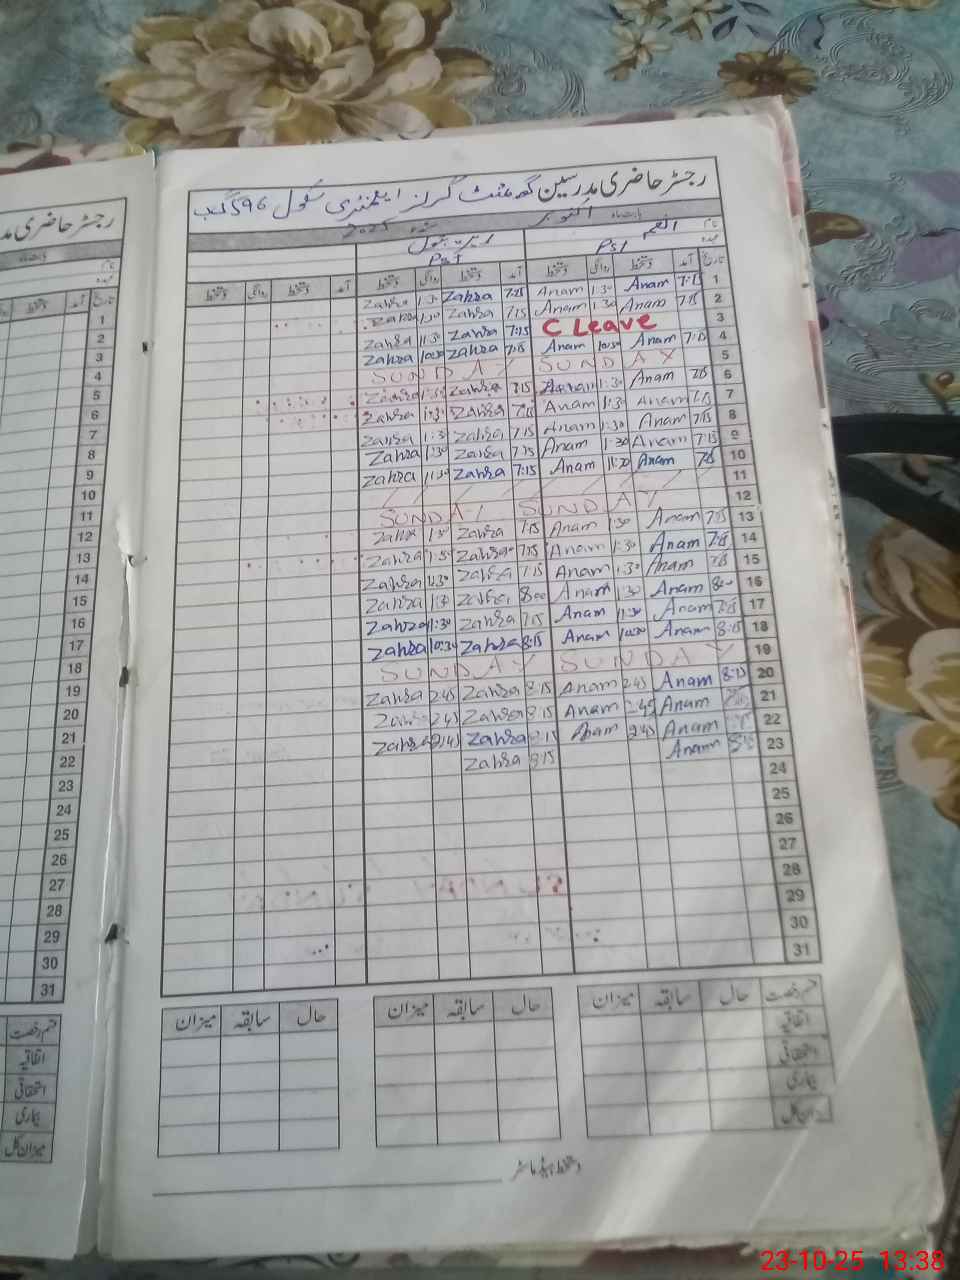 رجسٹر حاضری مدرسین گورنمنٹ گرلز ایلیمنٹری سکول 596 گ ب
بابت ماہ اکتوبر 2025
نام انعم
عہدہ PST PST
تاریخ آمد دستخط روانگی دستخط آمد دستخط روانگی دستخط آمد دستخط روانگی دستخط
1 7:15 Anam 1:30 Anam 7:15 Zahra 1:30 Zahra
2 7:15 Anam 1:30 Anam 7:15 Zahra 1:30 Zahra
3 C Leave 7:15 Zahra 11:30 Zahra
4 7:15 Anam 10:30 Anam 7:15 Zahra 10:30 Zahra
5 SUNDAY SUNDAY
6 7:15 Anam 1:30 Anam 7:15 Zahra 1:30 Zahra
7 7:15 Anam 1:30 Anam 7:15 Zahra 1:30 Zahra
8 7:15 Anam 1:30 Anam 7:15 Zahra 1:30 Zahra
9 7:15 Anam 1:30 Anam 7:15 Zahra 1:30 Zahra
10 7:15 Anam 11:30 Anam 7:15 Zahra 11:30 Zahra
11
12 SUNDAY SUNDAY
13 7:15 Anam 1:30 Anam 7:15 Zahra 1:30 Zahra
14 7:15 Anam 1:30 Anam 7:15 Zahra 1:30 Zahra
15 7:15 Anam 1:30 Anam 7:15 Zahra 1:30 Zahra
16 8:00 Anam 1:30 Anam 8:00 Zahra 1:30 Zahra
17 7:15 Anam 11:30 Anam 7:15 Zahra 11:30 Zahra
18 8:15 Anam 10:30 Anam 8:15 Zahra 10:30 Zahra
19 SUNDAY SUNDAY
20 8:15 Anam 2:45 Anam 8:15 Zahra 2:45 Zahra
21 Anam 2:45 Anam 8:15 Zahra 2:45 Zahra
22 Anam 2:45 Anam 8:15 Zahra 2:45 Zahra
23 8:15 Anam 8:15 Zahra
24
25
26
27
28
29
30
31
قسم رخصت حال سابقہ میزان حال سابقہ میزان حال سابقہ میزان
اتفاقیہ
استحقاقی
بیماری
میزان کل
دستخط ہیڈ ماسٹر
رجسٹر حاضری مد
بابت ماہ
نام
عہدہ
تاریخ آمد دستخط
1
2
3
4
5
6
7
8
9
10
11
12
13
14
15
16
17
18
19
20
21
22
23
24
25
26
27
28
29
30
31
قسم رخصت
اتفاقیہ
استحقاقی
بیماری
میزان کل
23-10-25 13:38